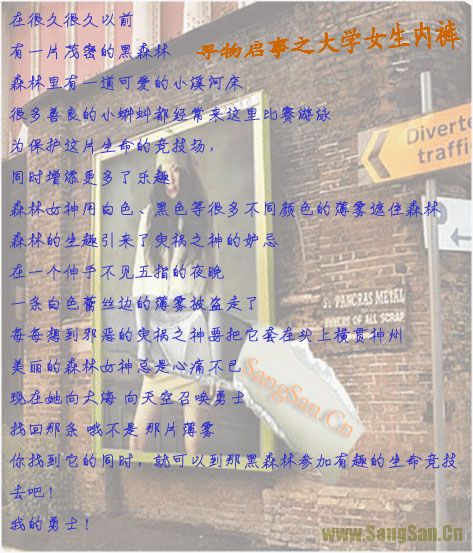 寻物启事之大学女生内裤
在很久很久以前
有一片茂密的黑森林
森林里有一道可爱的小溪河床
很多善良的小蝌蚪都经常来这里比赛游泳
为保护这片生命的竞技场，
同时增添更多了乐趣
森林女神用白色、黑色等很多不同颜色的薄雾遮住森林
森林的生趣引来了灾祸之神的妒忌
在一个伸手不见五指的夜晚
一条白色蕾丝边的薄雾被盗走了
每每想到邪恶的灾祸之神要把它套在头上横贯神州
美丽的森林女神总是心痛不已
现在她向大海 向天空召唤勇士
找回那条 哦不是 那片薄雾
你找到它的同时，就可以到那黑森林参加有趣的生命竞技
去吧！
我的勇士！
Diverte
traffi
ST PANCRAS METAL
BUYERS OF ALL SCRAP
SangSan.Cn
www.SangSan.Cn